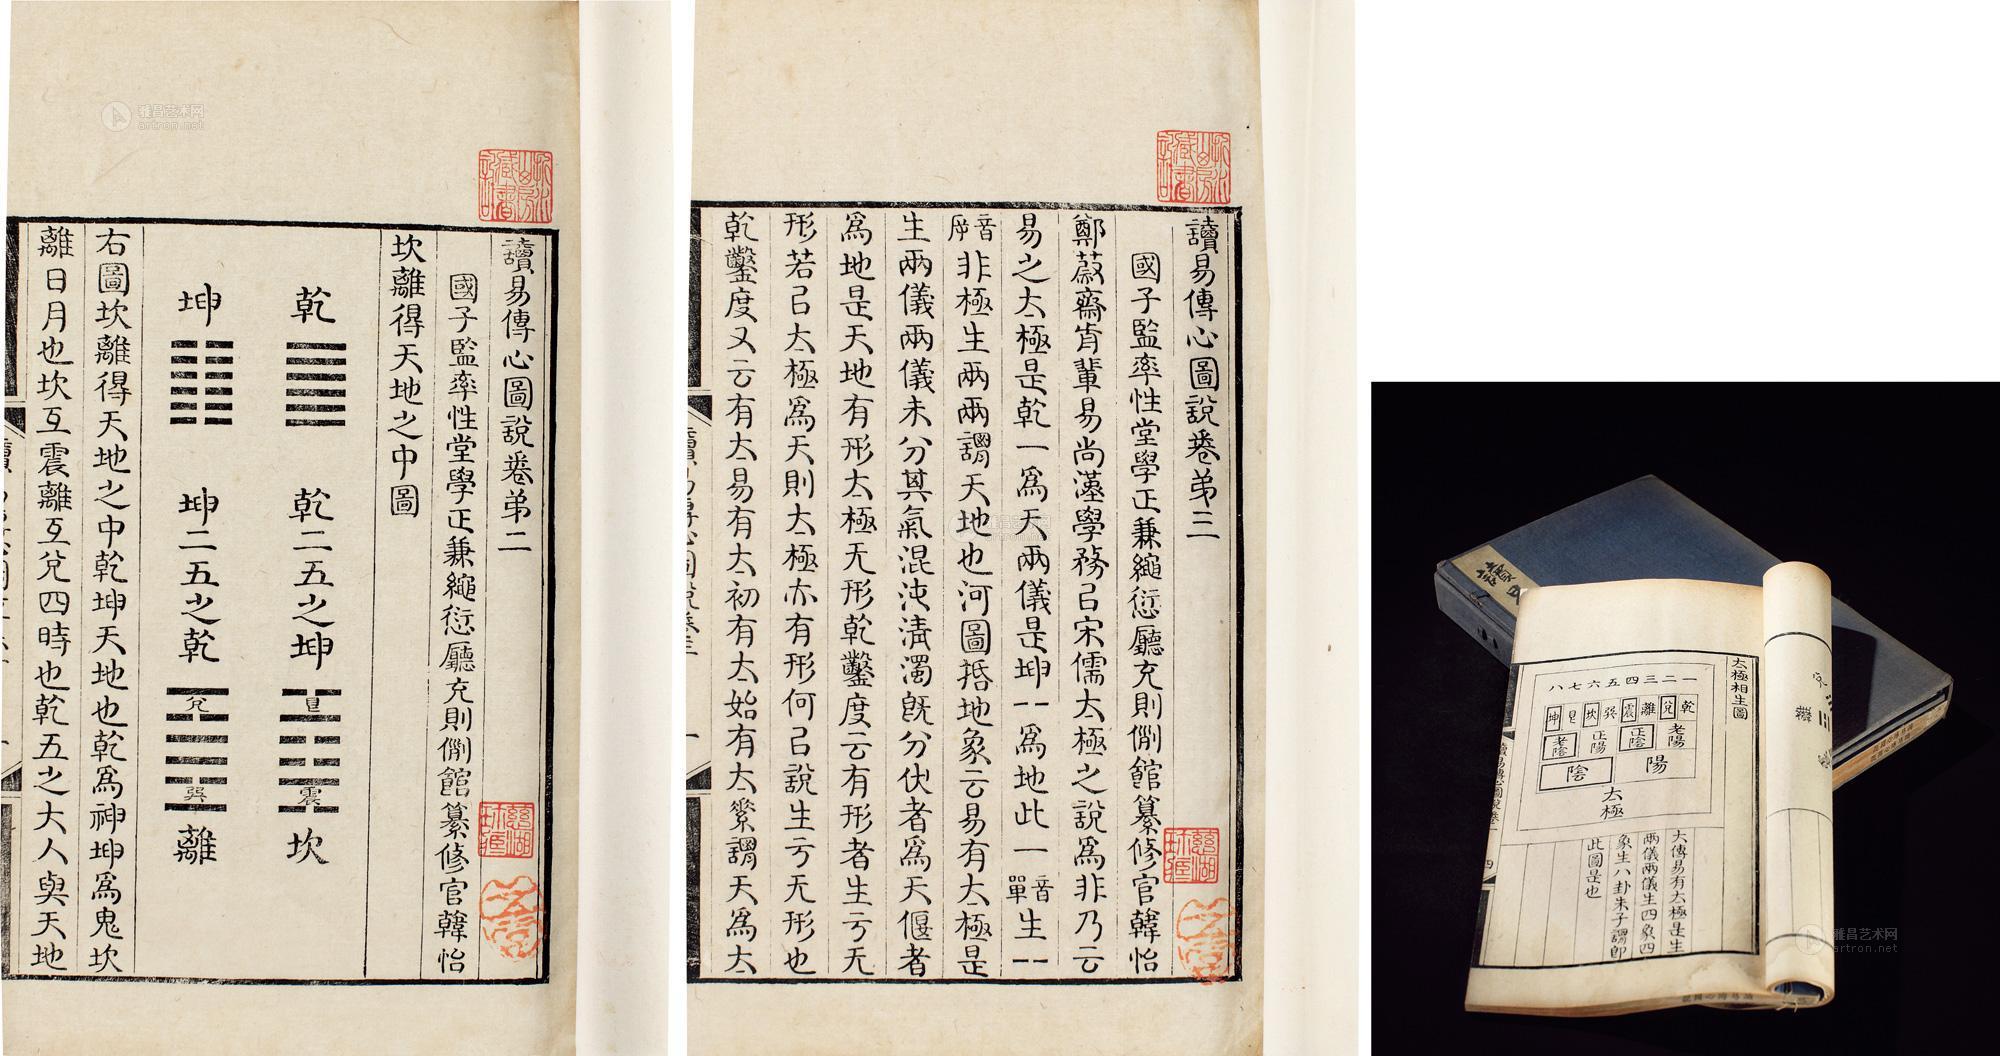 讀易傳心圖說卷弟二
國子監率性堂學正兼繩愆廳充則例館纂修官韓怡
坎離得天地之中圖
乾 乾二五之坤 艮 震 坎
坤 坤二五之乾 兌 巽 離
右圖坎離得天地之中乾坤天地也乾爲神坤爲鬼坎
離日月也坎互震離互兌四時也乾五之大人與天地
讀易傳心圖說卷弟三
國子監率性堂學正兼繩愆廳充則例館纂修官韓怡
鄭蔚齋肯輩易尚漢學務㠯宋儒太極之說爲非乃云
易之太極是乾一爲天兩儀是坤--爲地此一音單生--
音序非極生兩兩謂天地也河圖括地象云易有太極是
生兩儀兩儀未分其氣混沌淸濁旣分伏者爲天偃者
爲地是天地有形太極无形乾鑿度云有形者生亏无
形若㠯太極爲天則太極亦有形何㠯說生亏无形也
乾鑿度又云有太易有太初有太始有太素謂天爲太
太極相生圖
八七六五四三二一
坤艮坎巽震離兌乾
老陰 正陽 正陰 老陽
陰 陽
太極
大傳易有太極是生
兩儀兩儀生四象四
象生八卦朱子謂卽
此圖是也
雅昌艺术网
artron.net